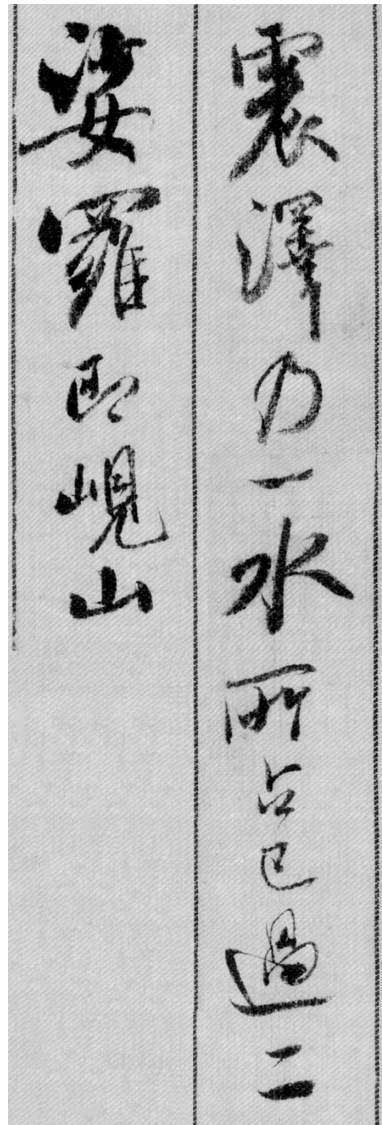 震澤乃一水所占已過二
娑羅即峴山